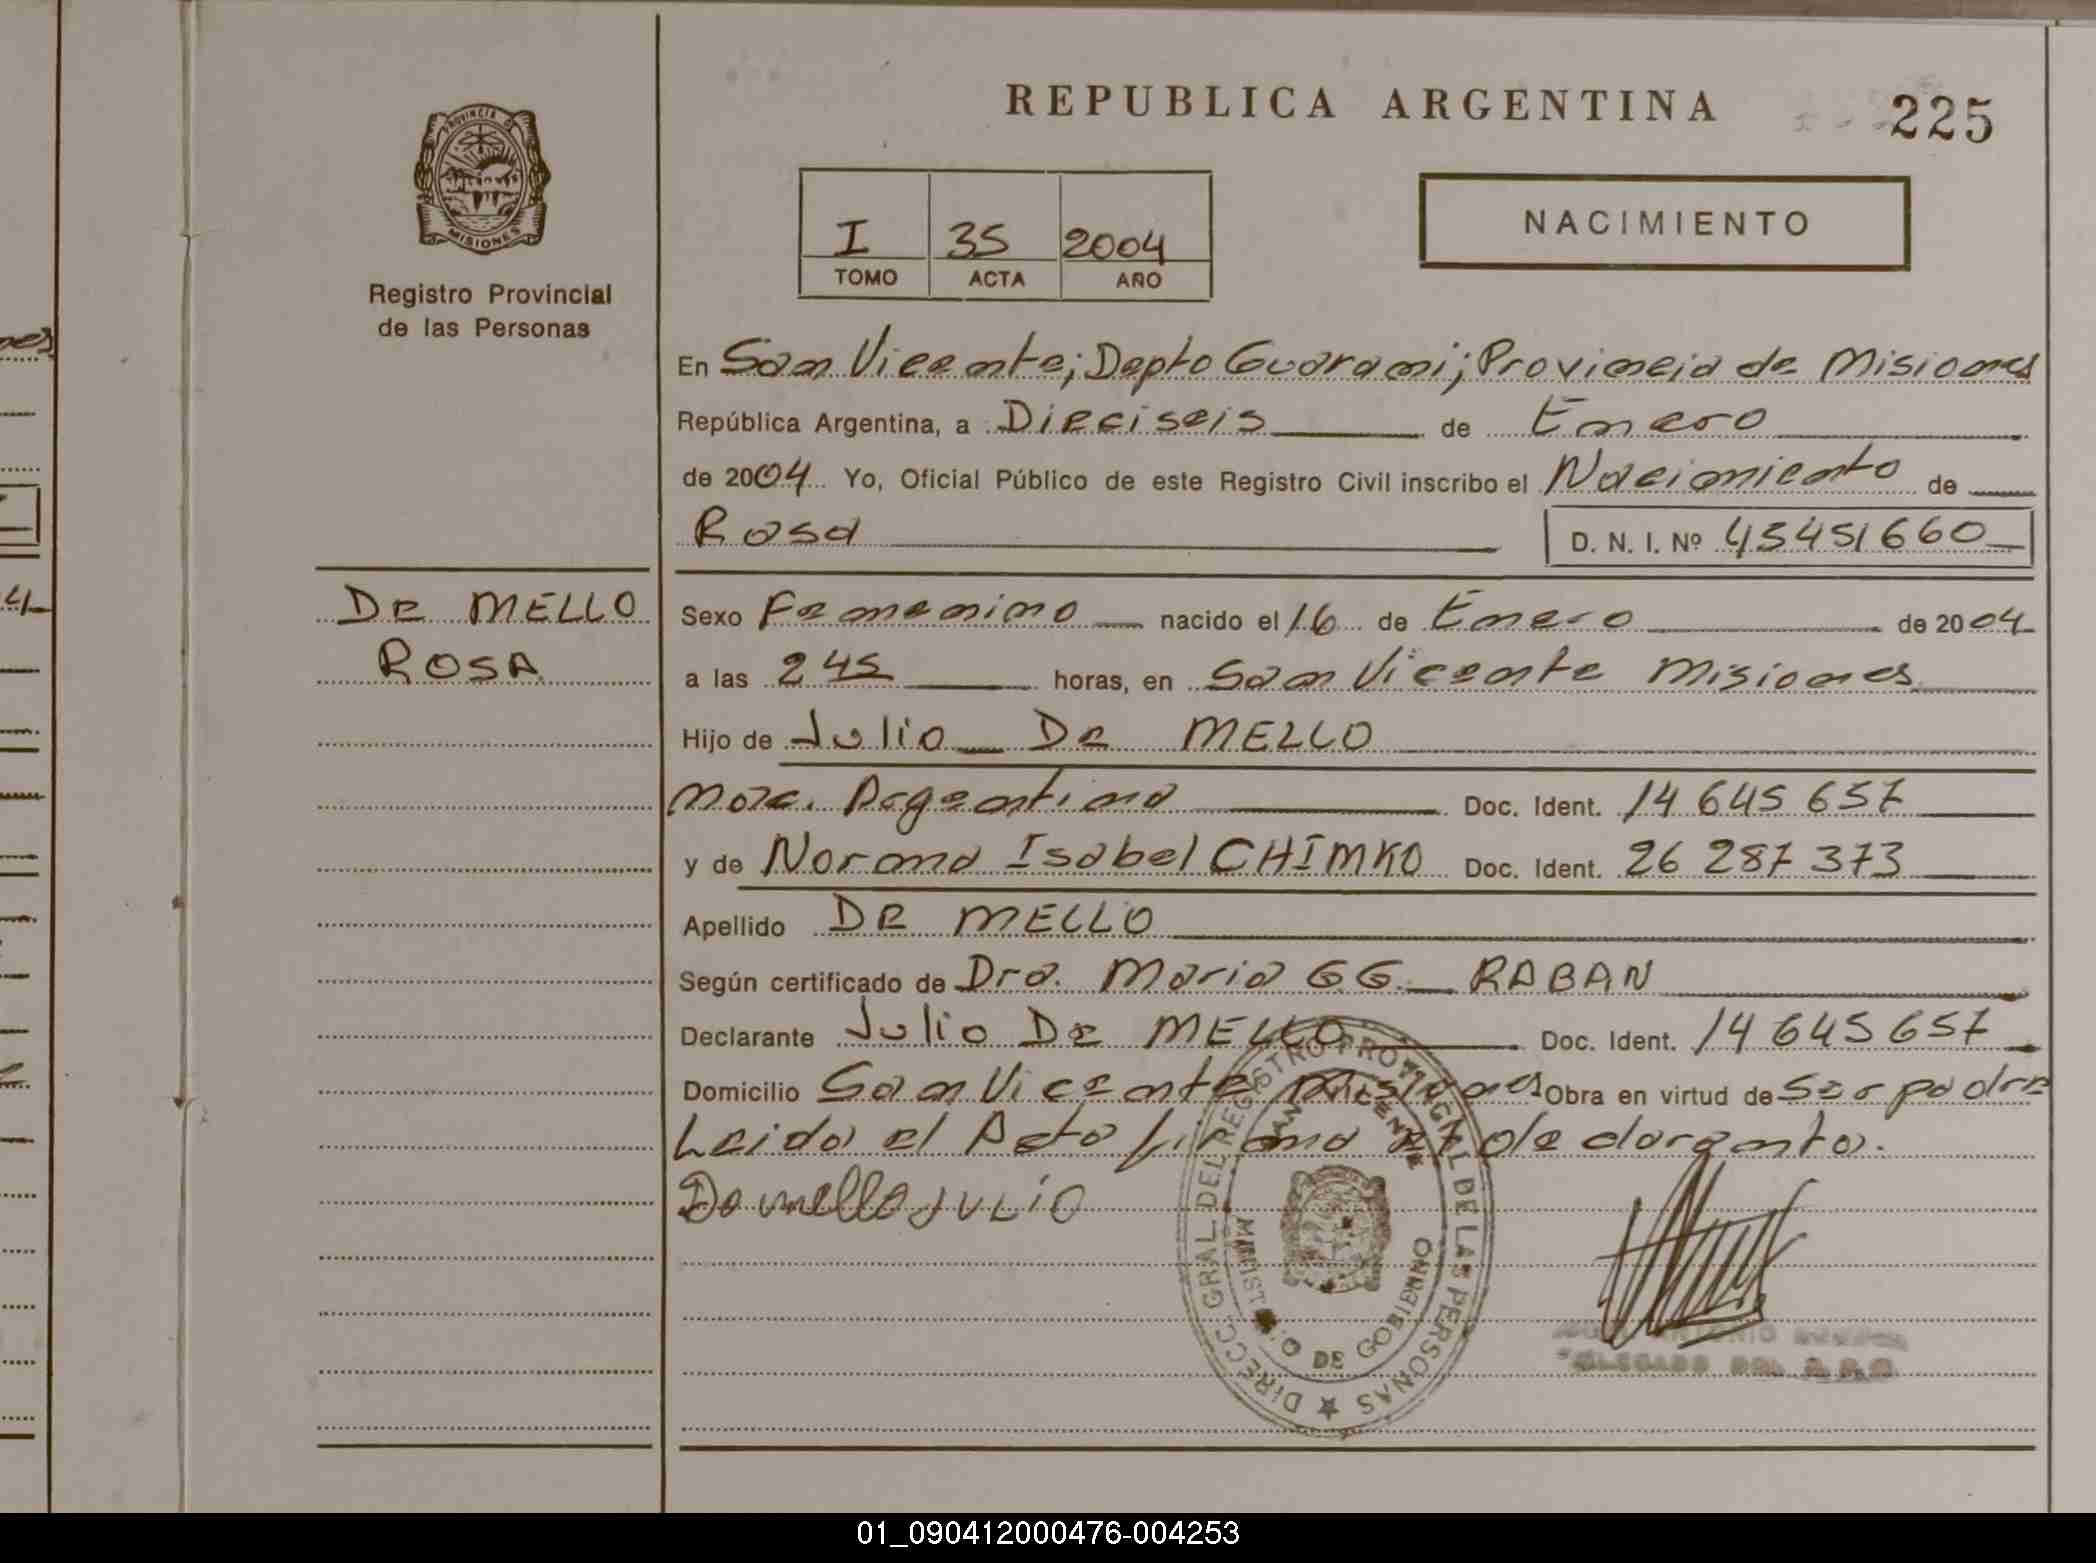 REPUBLICA ARGENTINA
225
PROVINCIA DE
MISIONES
Registro Provincial
de las Personas
I 35 2004
TOMO ACTA AÑO
NACIMIENTO
En San Vicente; Depto Guarani; Provincia de Misiones
República Argentina, a Dieciseis de Enero
de 2004 Yo, Oficial Público de este Registro Civil inscribo el Nacimiento de
Rosa D. N. I. Nº 45451660
DE MELLO
ROSA
Sexo Femenino nacido el 16 de Enero de 2004
a las 2 45 horas, en San Vicente Misiones
Hijo de Julio De MELLO
Nac. Argentina Doc. Ident. 14 645 657
y de Norma Isabel CHIMKO Doc. Ident. 26 287 373
Apellido DE MELLO
Según certificado de Dra. Maria G G RABAN
Declarante Julio De MELLO Doc. Ident. 14 645 657
Domicilio San Vicente Misiones Obra en virtud de Ser padre
Leida el Acta firma el declarante.
De mello JULiO
DIRECC. GRAL. DEL REGISTRO PROVINCIAL DE LAS PERSONAS
SAN VICENTE
MINISTERIO DE GOBIERNO
01_090412000476-004253